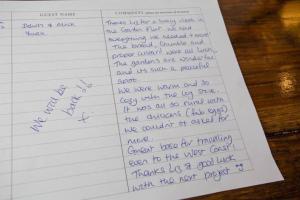 GUEST NAME
COMMENTS
Dawn & Mick
We will be
back !!
x
Thanks Liz for a lovely week in
the Garden Flat. We had
everything we needed & more!
The bread, crumble and
proper were all lush.
The gardens are wonderful
and its such a peaceful
spot.
We were warm and so
cosy with the log stove.
It was all so rural with
the chickens (fab eggs)
We couldn't of asked for
more.
Great base for travelling
even to the West Coast.
Thanks Liz & good luck
with the next project